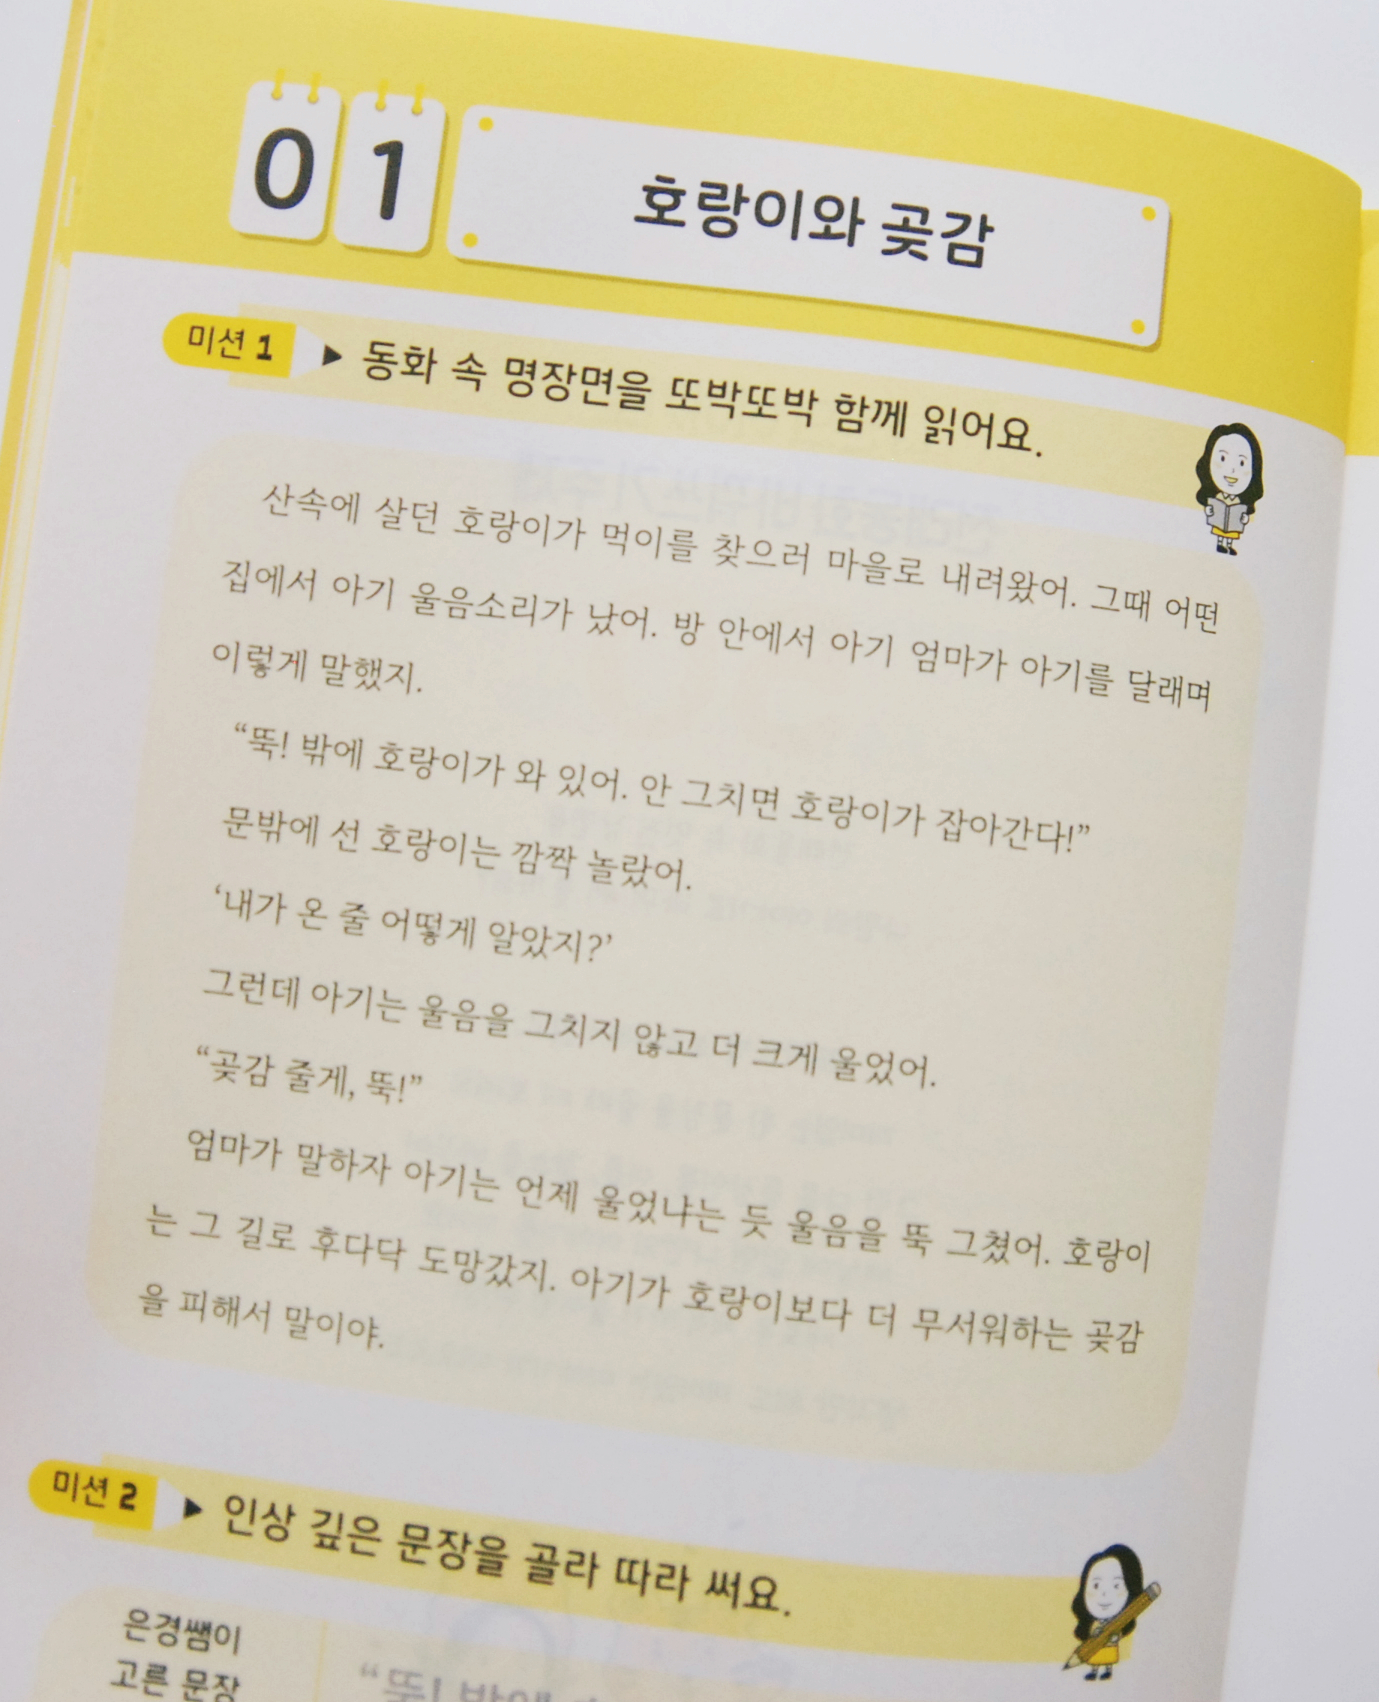 01
호랑이와 곶감
미션 1 ▶ 동화 속 명장면을 또박또박 함께 읽어요.
산속에 살던 호랑이가 먹이를 찾으러 마을로 내려왔어. 그때 어떤
집에서 아기 울음소리가 났어. 방 안에서 아기 엄마가 아기를 달래며
이렇게 말했지.
“뚝! 밖에 호랑이가 와 있어. 안 그치면 호랑이가 잡아간다!”
문밖에 선 호랑이는 깜짝 놀랐어.
‘내가 온 줄 어떻게 알았지?’
그런데 아기는 울음을 그치지 않고 더 크게 울었어.
“곶감 줄게, 뚝!”
엄마가 말하자 아기는 언제 울었냐는 듯 울음을 뚝 그쳤어. 호랑이
는 그 길로 후다닥 도망갔지. 아기가 호랑이보다 더 무서워하는 곶감
을 피해서 말이야.
미션 2 ▶ 인상 깊은 문장을 골라 따라 써요.
은경쌤이
고른 문장
“뚝! 밖에